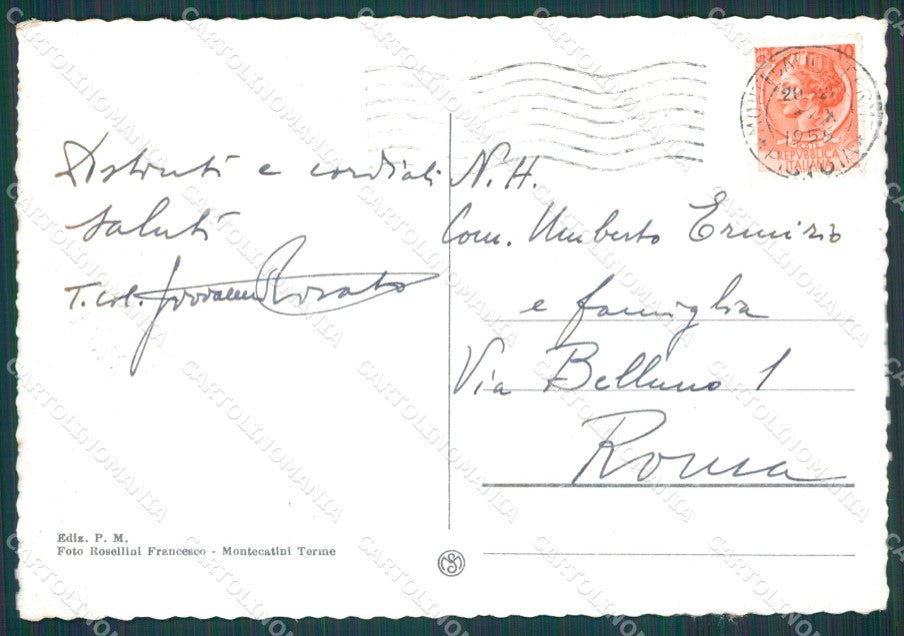 Distinti e cordiali
saluti
T. Col. Giovanni Rosato
N. H.
Com. Umberto Ermirio
e famiglia
Via Belluno 1
Roma
Ediz. P. M.
Foto Rosellini Francesco - Montecatini Terme
REPVBBLICA
ITALIANA
1955
CARTOLINOMANIA